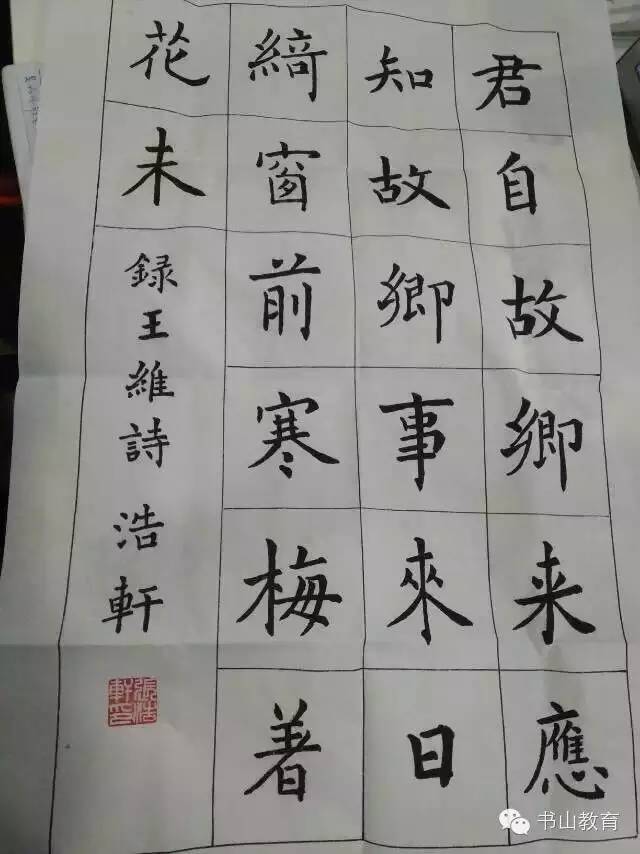 君自故鄉来應
知故鄉事來日
綺窗前寒梅著
花未
録王維詩 浩軒
張浩軒印
书山教育